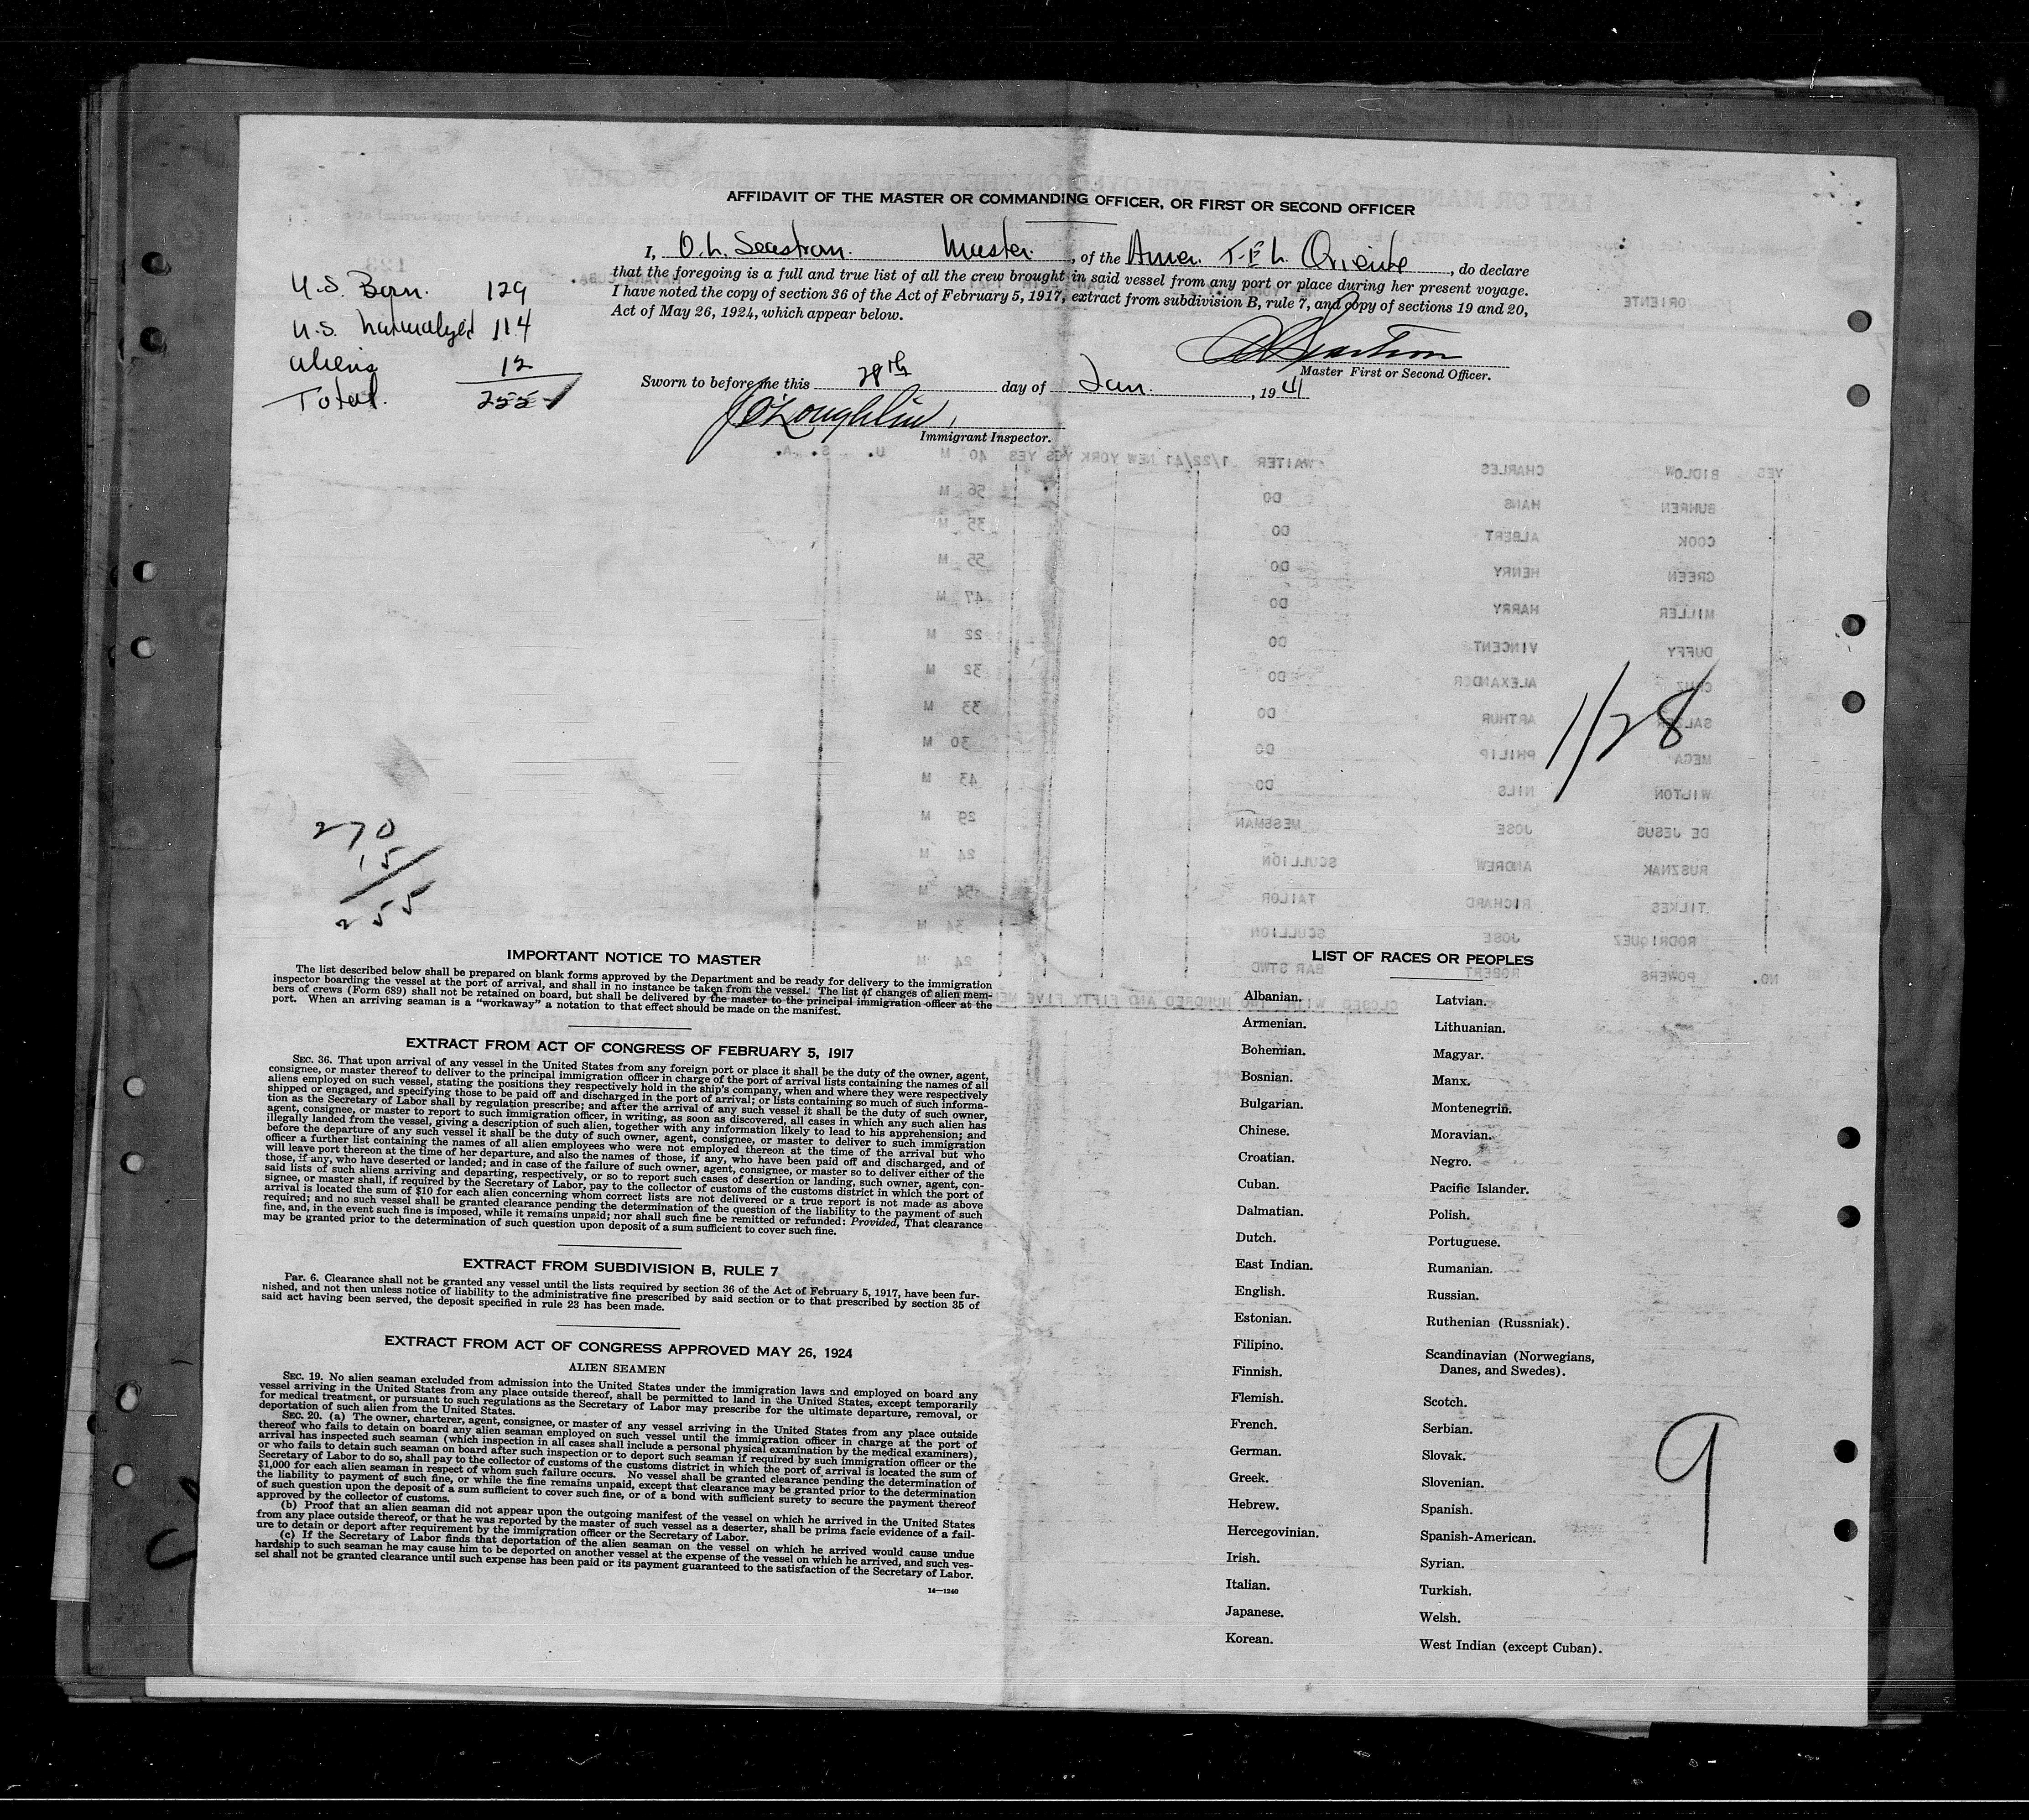 AFFIDAVIT OF THE MASTER OR COMMANDING OFFICER, OR FIRST OR SECOND OFFICER
I, O. L. Seastrom. Master, of the Amer. T.E.L. Oriente, do declare
that the foregoing is a full and true list of all the crew brought in said vessel from any port or place during her present voyage.
I have noted the copy of section 36 of the Act of February 5, 1917, extract from subdivision B, rule 7, and copy of sections 19 and 20,
Act of May 26, 1924, which appear below.
Master First or Second Officer.
Sworn to before me this 28th day of Jan., 1941
J O'Loughlin
Immigrant Inspector.
U.S. Born. 129
U.S. Naturalized 114
Aliens 12
Total. 255
1/28
270
15
255
IMPORTANT NOTICE TO MASTER
The list described below shall be prepared on blank forms approved by the Department and be ready for delivery to the immigration
inspector boarding the vessel at the port of arrival, and shall in no instance be taken from the vessel. The list of changes of alien mem-
bers of crews (Form 689) shall not be retained on board, but shall be delivered by the master to the principal immigration officer at the
port. When an arriving seaman is a "workaway" a notation to that effect should be made on the manifest.
EXTRACT FROM ACT OF CONGRESS OF FEBRUARY 5, 1917
SEC. 36. That upon arrival of any vessel in the United States from any foreign port or place it shall be the duty of the owner, agent,
consignee, or master thereof to deliver to the principal immigration officer in charge of the port of arrival lists containing the names of all
aliens employed on such vessel, stating the positions they respectively hold in the ship's company, when and where they were respectively
shipped or engaged, and specifying those to be paid off and discharged in the port of arrival; or lists containing so much of such informa-
tion as the Secretary of Labor shall by regulation prescribe; and after the arrival of any such vessel it shall be the duty of such owner,
agent, consignee, or master to report to such immigration officer, in writing, as soon as discovered, all cases in which any such alien has
illegally landed from the vessel, giving a description of such alien, together with any information likely to lead to his apprehension; and
before the departure of any such vessel it shall be the duty of such owner, agent, consignee, or master to deliver to such immigration
officer a further list containing the names of all alien employees who were not employed thereon at the time of the arrival but who
will leave port thereon at the time of her departure, and also the names of those, if any, who have been paid off and discharged, and of
those, if any, who have deserted or landed; and in case of the failure of such owner, agent, consignee, or master so to deliver either of the
said lists of such aliens arriving and departing, respectively, or so to report such cases of desertion or landing, such owner, agent, con-
signee, or master shall, if required by the Secretary of Labor, pay to the collector of customs of the customs district in which the port of
arrival is located the sum of $10 for each alien concerning whom correct lists are not delivered or a true report is not made as above
required; and no such vessel shall be granted clearance pending the determination of the question of the liability to the payment of such
fine, and, in the event such fine is imposed, while it remains unpaid; nor shall such fine be remitted or refunded: Provided, That clearance
may be granted prior to the determination of such question upon deposit of a sum sufficient to cover such fine.
EXTRACT FROM SUBDIVISION B, RULE 7
Par. 6. Clearance shall not be granted any vessel until the lists required by section 36 of the Act of February 5, 1917, have been fur-
nished, and not then unless notice of liability to the administrative fine prescribed by said section or to that prescribed by section 35 of
said act having been served, the deposit specified in rule 23 has been made.
EXTRACT FROM ACT OF CONGRESS APPROVED MAY 26, 1924
ALIEN SEAMEN
SEC. 19. No alien seaman excluded from admission into the United States under the immigration laws and employed on board any
vessel arriving in the United States from any place outside thereof, shall be permitted to land in the United States, except temporarily
for medical treatment, or pursuant to such regulations as the Secretary of Labor may prescribe for the ultimate departure, removal, or
deportation of such alien from the United States.
SEC. 20. (a) The owner, charterer, agent, consignee, or master of any vessel arriving in the United States from any place outside
thereof who fails to detain on board any alien seaman employed on such vessel until the immigration officer in charge at the port of
arrival has inspected such seaman (which inspection in all cases shall include a personal physical examination by the medical examiners),
or who fails to detain such seaman on board after such inspection or to deport such seaman if required by such immigration officer or the
Secretary of Labor to do so, shall pay to the collector of customs of the customs district in which the port of arrival is located the sum of
$1,000 for each alien seaman in respect of whom such failure occurs. No vessel shall be granted clearance pending the determination of
the liability to payment of such fine, or while the fine remains unpaid, except that clearance may be granted prior to the determination
of such question upon the deposit of a sum sufficient to cover such fine, or of a bond with sufficient surety to secure the payment thereof
approved by the collector of customs.
(b) Proof that an alien seaman did not appear upon the outgoing manifest of the vessel on which he arrived in the United States
from any place outside thereof, or that he was reported by the master of such vessel as a deserter, shall be prima facie evidence of a fail-
ure to detain or deport after requirement by the immigration officer or the Secretary of Labor.
(c) If the Secretary of Labor finds that deportation of the alien seaman on the vessel on which he arrived would cause undue
hardship to such seaman he may cause him to be deported on another vessel at the expense of the vessel on which he arrived, and such ves-
sel shall not be granted clearance until such expense has been paid or its payment guaranteed to the satisfaction of the Secretary of Labor.
14—1240
LIST OF RACES OR PEOPLES
Albanian.
Armenian.
Bohemian.
Bosnian.
Bulgarian.
Chinese.
Croatian.
Cuban.
Dalmatian.
Dutch.
East Indian.
English.
Estonian.
Filipino.
Finnish.
Flemish.
French.
German.
Greek.
Hebrew.
Hercegovinian.
Irish.
Italian.
Japanese.
Korean.
Latvian.
Lithuanian.
Magyar.
Manx.
Montenegrin.
Moravian.
Negro.
Pacific Islander.
Polish.
Portuguese.
Rumanian.
Russian.
Ruthenian (Russniak).
Scandinavian (Norwegians,
Danes, and Swedes).
Scotch.
Serbian.
Slovak.
Slovenian.
Spanish.
Spanish-American.
Syrian.
Turkish.
Welsh.
West Indian (except Cuban).
9